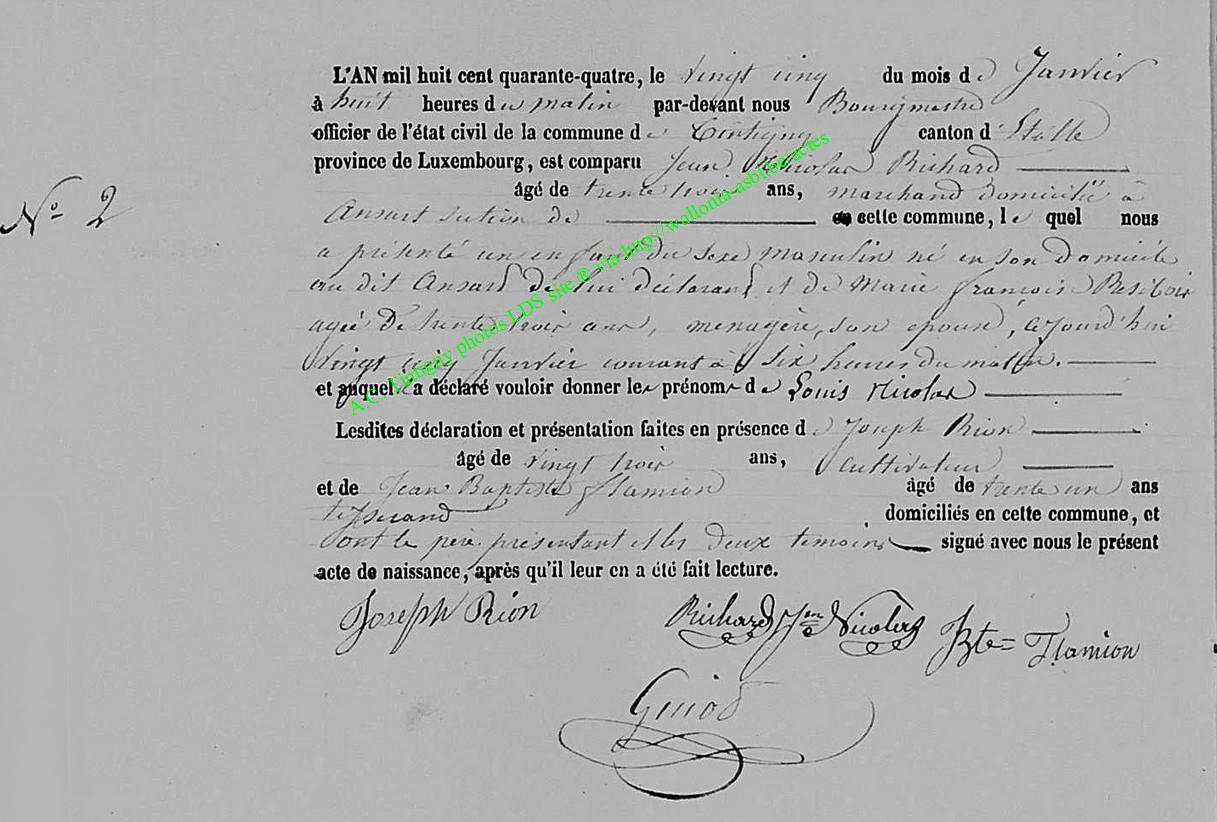 L'AN mil huit cent quarante-quatre, le vingt cinq du mois de Janvier
à huit heures du matin par-devant nous Bourgmestre
officier de l'état civil de la commune de Tintigny canton d'Etalle
province de Luxembourg, est comparu Jean Nicolas Richard
âgé de trente trois ans, marchand domicilié à
Nº 2
Ansart section de cette commune, le quel nous
a présenté un enfant du sexe masculin né en son domicile
au dit Ansard de lui déclarant et de Marie françois
agée de trente trois ans, menagère, son épouse, ajourd'hui
vingt cinq Janvier courant à six heures du matin.
et auquel a déclaré vouloir donner les prénoms de Louis Nicolas
Lesdites déclaration et présentation faites en présence de Joseph Rion
âgé de vingt trois ans, cultivateur
et de Jean Baptiste flamion âgé de trente un ans
tisserand domiciliés en cette commune, et
ont le père présentant et les deux temoins signé avec nous le présent
acte de naissance, après qu'il leur en a été fait lecture.
Joseph Rion Richard Jen Nicolas Bte= Flamion
A.C. Tintigny photos LDS site ® via http://wallonia-asbl.org/actes